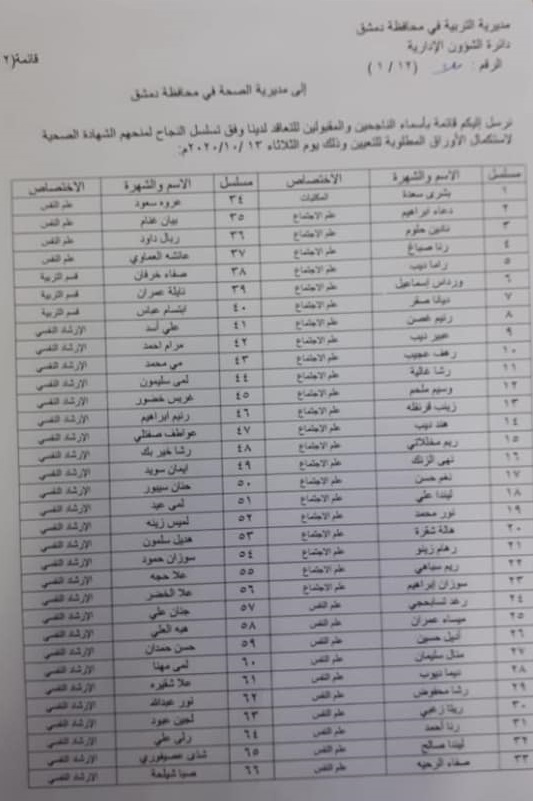 مديرية التربية في محافظة دمشق
دائرة الشؤون الإدارية
الرقم : (١ / ١٢)
قائمة(٢
إلى مديرية الصحة في محافظة دمشق
نرسل إليكم قائمة بأسماء الناجحين والمقبولين للتعاقد لدينا وفق تسلسل النجاح لمنحهم الشهادة الصحية
لاستكمال الأوراق المطلوبة للتعيين وذلك يوم الثلاثاء ١٣ /٢٠٢٠/١٠م:
مسلسل الاسم والشهرة الاختصاص مسلسل الاسم والشهرة الاختصاص
١ بشرى سعدة المكتبات ٣٤ عروه سعود علم النفس
٢ دعاء ابراهيم علم الاجتماع ٣٥ بيان غنام علم النفس
٣ نادين حلوم علم الاجتماع ٣٦ ريال داود علم النفس
٤ رنا صباغ علم الاجتماع ٣٧ عائشه العماوي علم النفس
٥ راما ديب علم الاجتماع ٣٨ صفاء خرفان قسم التربية
٦ ورداس إسماعيل علم الاجتماع ٣٩ نايلة عمران قسم التربية
٧ ديانا صقر علم الاجتماع ٤٠ ابتسام عباس قسم التربية
٨ رنيم غصن علم الاجتماع ٤١ علي أسد الإرشاد النفسي
٩ عبير ديب علم الاجتماع ٤٢ مرام احمد الإرشاد النفسي
١٠ رهف عجيب علم الاجتماع ٤٣ مي محمد الإرشاد النفسي
١١ رشا غالية علم الاجتماع ٤٤ لمى سليمون الإرشاد النفسي
١٢ وسيم ملحم علم الاجتماع ٤٥ غريس خضور الإرشاد النفسي
١٣ زينب قرنفله علم الاجتماع ٤٦ رنيم ابراهيم الإرشاد النفسي
١٤ هند ديب علم الاجتماع ٤٧ عواطف صقتلي الإرشاد النفسي
١٥ ريم مخللاتي علم الاجتماع ٤٨ رشا خير بك الإرشاد النفسي
١٦ نهى الزنك علم الاجتماع ٤٩ ايمان سويد الإرشاد النفسي
١٧ نغم حسن علم الاجتماع ٥٠ حنان سيبور الإرشاد النفسي
١٨ ليندا علي علم الاجتماع ٥١ لمى عيد الإرشاد النفسي
١٩ نور محمد علم الاجتماع ٥٢ لميس زينه الإرشاد النفسي
٢٠ هالة شقرة علم الاجتماع ٥٣ هديل سلمون الإرشاد النفسي
٢١ رهام زينو علم الاجتماع ٥٤ سوزان حمود الإرشاد النفسي
٢٢ ريم سباهي علم الاجتماع ٥٥ علا حجه الإرشاد النفسي
٢٣ سوزان إبراهيم علم الاجتماع ٥٦ علا الخضر الإرشاد النفسي
٢٤ رعد علم النفس ٥٧ جنان علي الإرشاد النفسي
٢٥ ميساء عمران علم النفس ٥٨ هبه العلي الإرشاد النفسي
٢٦ أديل حسين علم النفس ٥٩ حسن حمدان الإرشاد النفسي
٢٧ منال سليمان علم النفس ٦٠ لمى مهنا الإرشاد النفسي
٢٨ ديما ديوب علم النفس ٦١ علا شقيره الإرشاد النفسي
٢٩ رشا محفوض علم النفس ٦٢ نور عبدالله الإرشاد النفسي
٣٠ ريتا زغبي علم النفس ٦٣ لجين عبود الإرشاد النفسي
٣١ رنا أحمد علم النفس ٦٤ رلى علي الإرشاد النفسي
٣٢ ليندا صالح علم النفس ٦٥ شذى عصيفوري الإرشاد النفسي
٣٣ صفاء الرحيه علم النفس ٦٦ صبا شيلحة الإرشاد النفسي